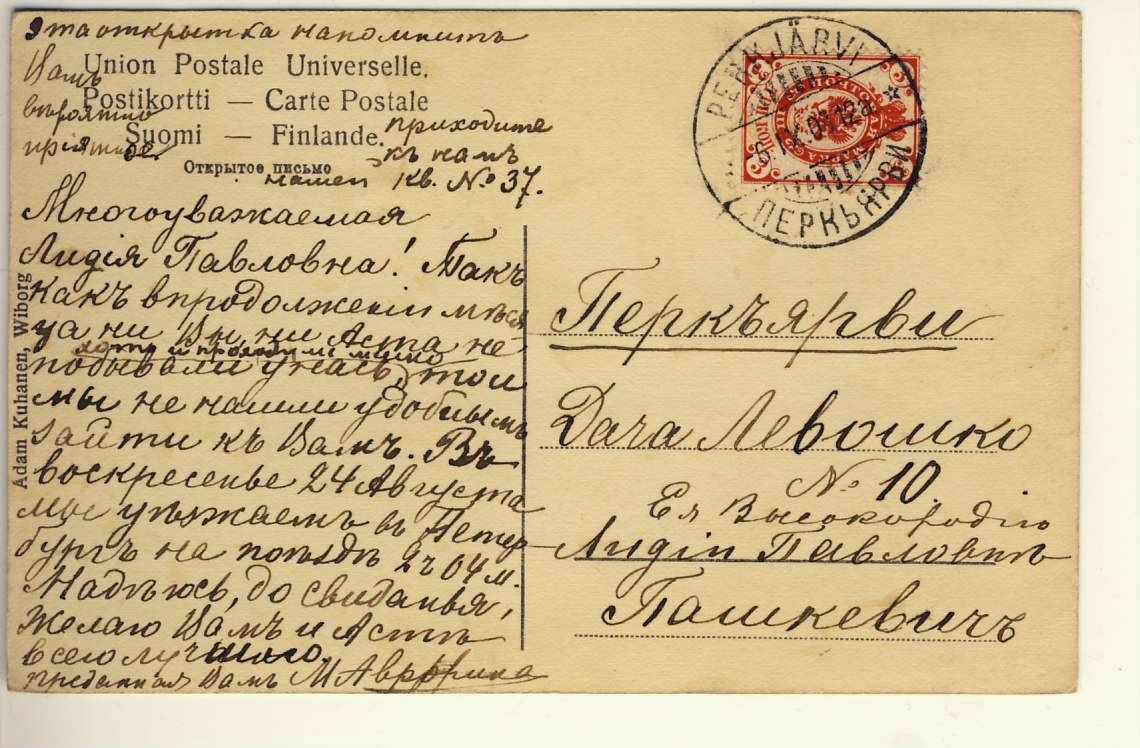 эта открытка напомнитъ
Вамъ
Union Postale Universelle.
Postikortti — Carte Postale
вѣроятно
Suomi — Finlande.
приходите
къ намъ
Открытое письмо
кв. № 37.
Многоуважаемая
Лидія Павловна! Такъ
какъ впродолженіи мѣся
ца ни Вы, ни Аста не
хотя и проходили мимо
побывали у насъ, то и
мы не нашли удобнымъ
зайти къ Вамъ. Въ
воскресенье 24 Августа
мы уѣзжаемъ въ Петер
бургъ на поѣздѣ 2 ч 04 м.
Надѣюсь, до свиданья,
желаю Вамъ и Астѣ
всего лучшаго
преданная Вамъ М
Adam Kuhanen, Wiborg
PERKJÄRVI
ПЕРКЪЯРВИ
Перкъярви
Дача Левошко
№ 10
Ея Высокородію
Лидіи Павловнѣ
Пашкевичъ